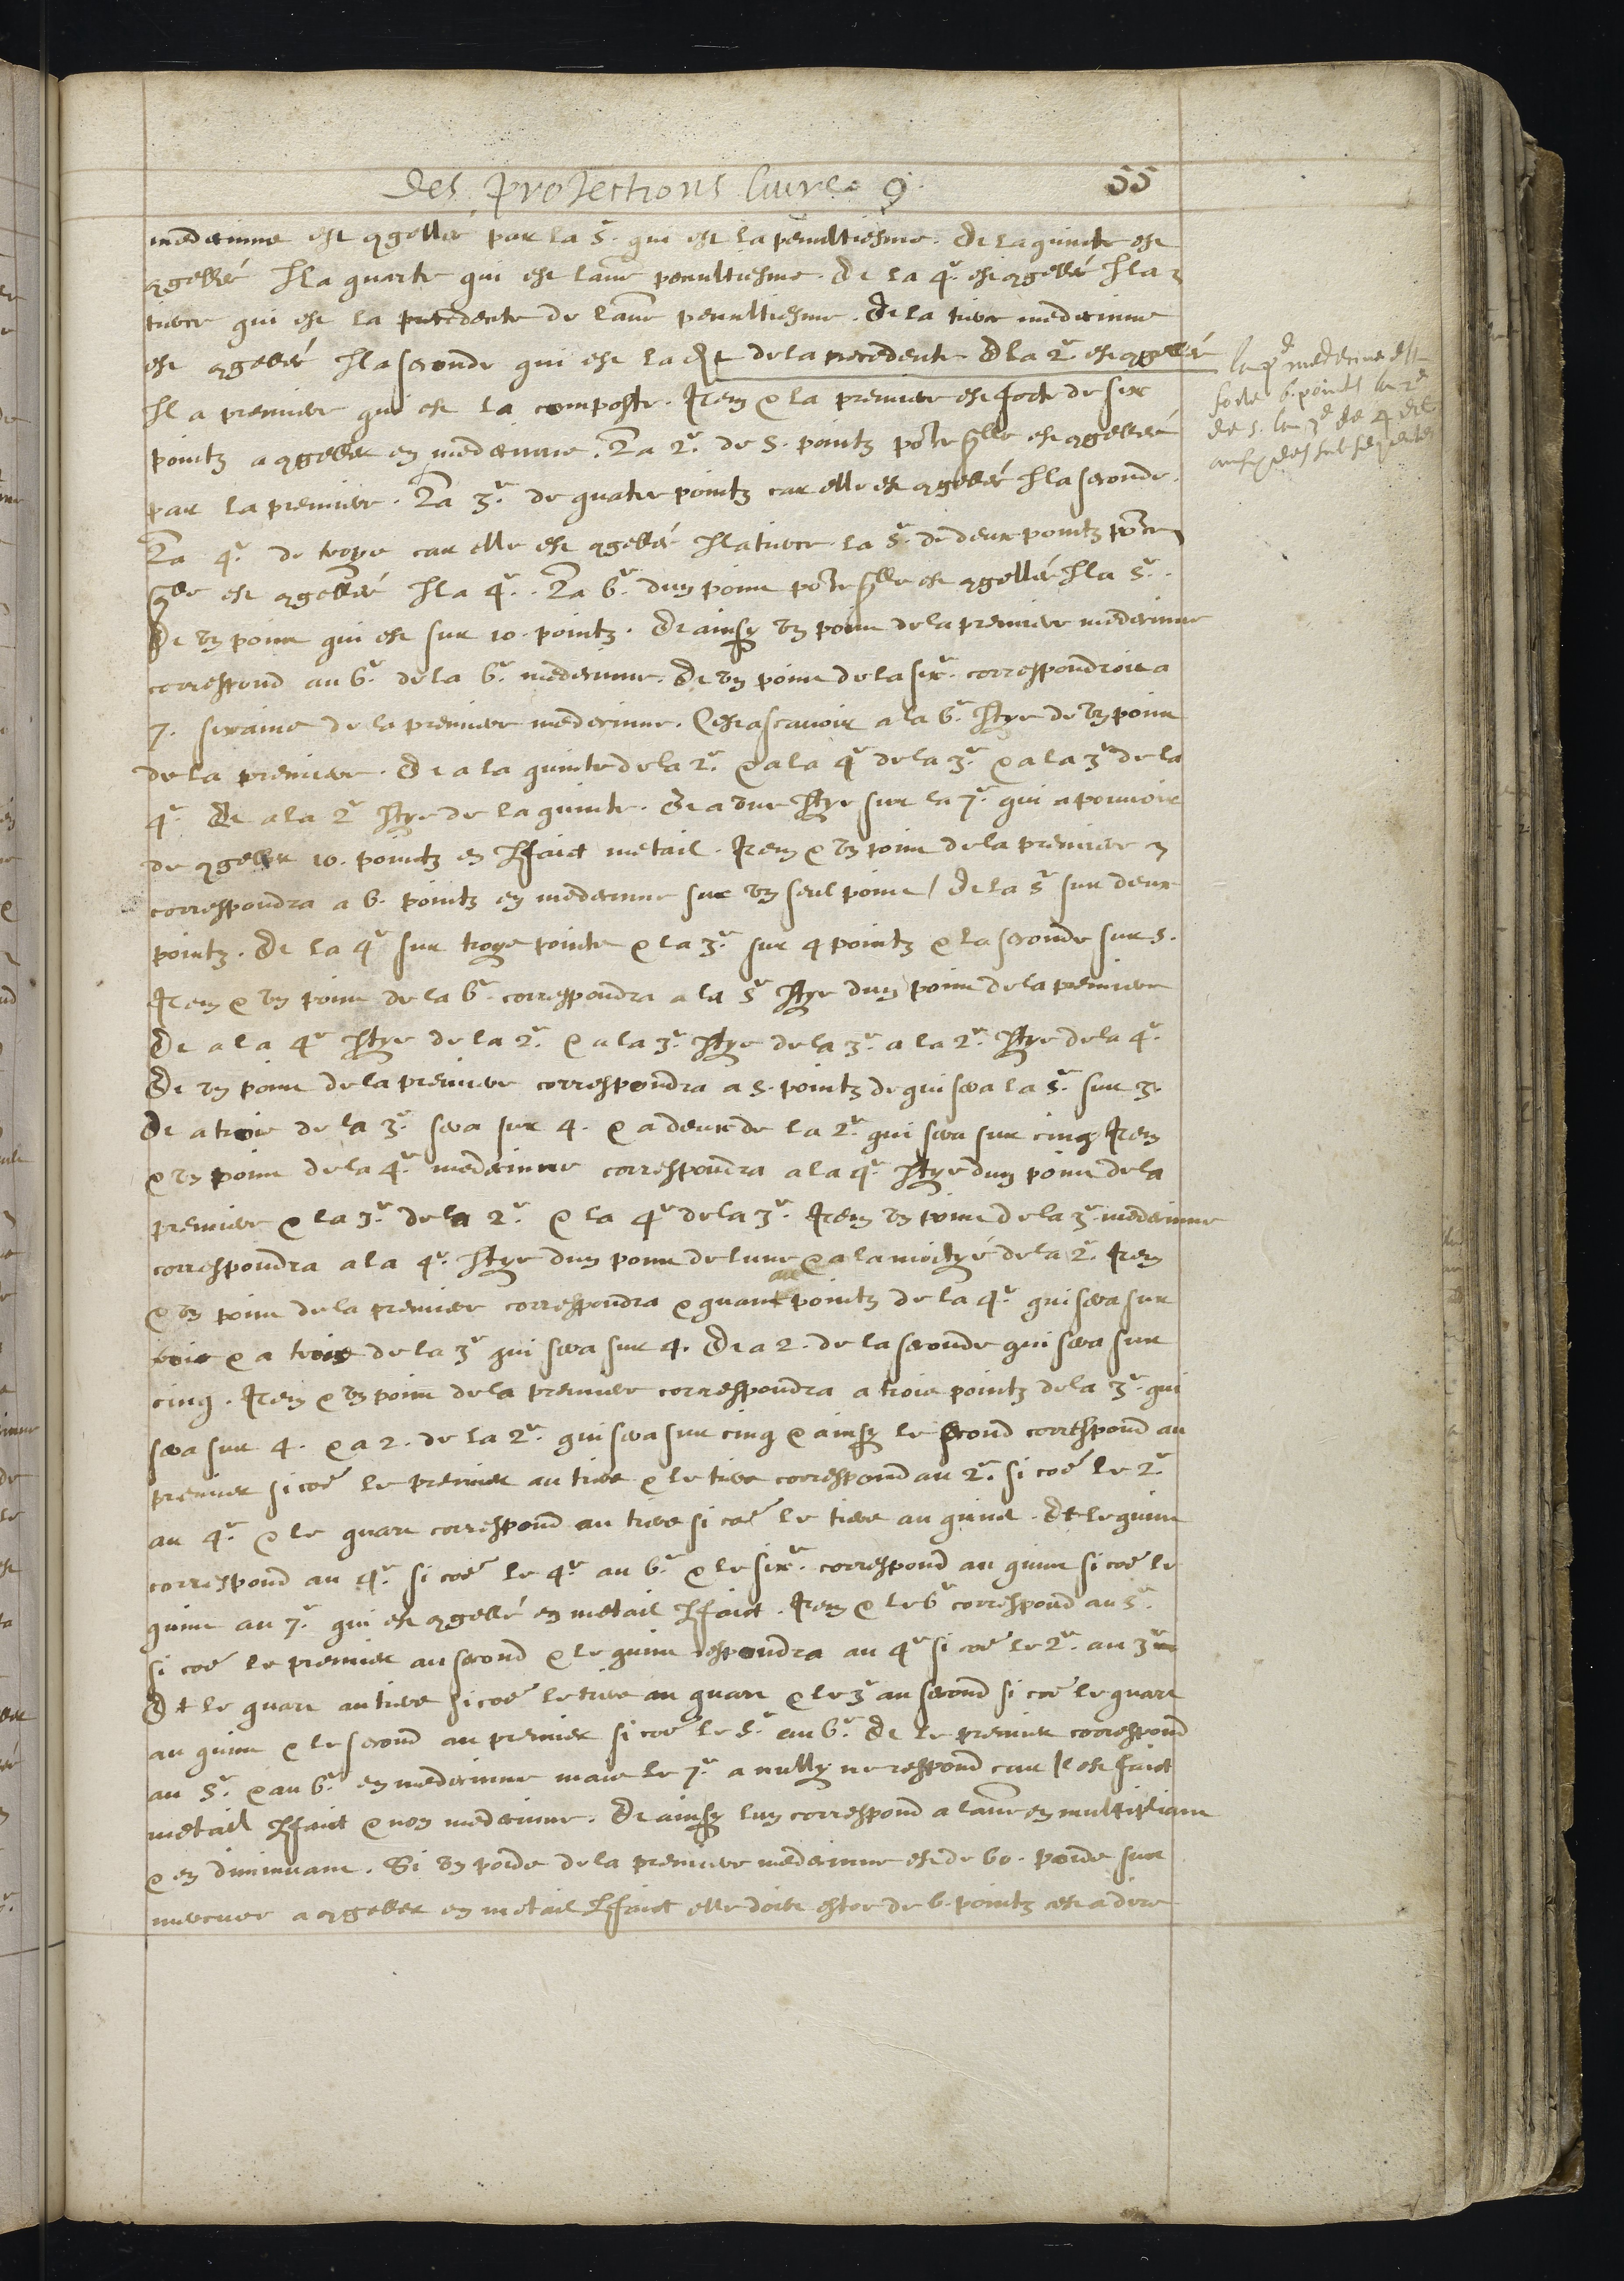 des projections livre. 9. 55
medecinne est congellée par la 5. qui est la penultiesme. Et la quinte est
congellé par la quarte qui est lautre penultiesme. Et la 4e. est congellé par la
tierce qui est la precedente de lautre penultiesme. Et la tierce medecinne
est congellé par la seconde qui est la de la precedente Et la 2e. est congellé
par la premiere qui est la composte. Item que la premiere est forte de six
pointz a congeller en medecinne. La 2e. de 5. pointz pource quelle est congellée
par la premiere. La 3e. de quatre pointz car elle est congellé par la seconde.
La 4e. de troys car elle est congellé par la tierce. la 5e. de deux pointz pource
quelle est congellé par la 4e. La 6e. dun point pource quelle est congellée par la 5e.
Et un point qui est sur 10. pointz. Et ainsy un point de la premiere medecinne
correspond au 6e. de la 6e. medecinne. Et un point de la sixe. correspondroit a
7. sixaine de la premiere medecinne. Cest ascavoir a la 6e. partye de un point
de la premiere. Et a la quinte de la 2e. et a la 4e de la 3e. et a la 3e de la
4e. Et a la 2e partye de la quinte. Et a une partye sur la 7e. qui a pouvoir
de congeller 10. pointz en parfaict metail. Item que un point de la premiere
correspondra a 6. pointz en medecinne sur un seul point / Et la 5e sur deux
pointz. Et la 4e sur troys pointz et la 3e. sur 4 pointz et la seconde sur 5.
Item que un point de la 6e. correspondra a la 5e partye dun point de la premiere
Et a la 4e partye de la 2e. et a la 3e. partye de la 3e. a la 2e. partye de la 4e.
Et un point de la premiere correspondra a 5. pointz de qui sera la 5e. sur 3.
Et a trois de la 3e. sera sur 4. et a deux de la 2e. qui sera sur cinq Item
que un point de la 4e. medecinne correspondra a la 4e. partye dun point de la
premiere et la 3e. de la 2e. et la 4e de la 3e. Item un point de la 3e. medecinne
correspondra a la 4e. partye dun point de lune et a la moityé de la 2e. Item
que un point de la premiere correspondra quant pointz de la 4e. qui sera sur
trois et a trois de la 3e qui sera sur 4. Et a 2. de la seconde qui sera sur
cinq. Item que un point de la premiere correspondra a trois pointz de la 3e. qui
sera sur 4. et a 2. de la 2e. qui sera sur cinq et ainsy le second correspond au
premier si coe le premier au tiers et le tiers correspond au 2e. si coe le 2e.
au 4e. et le quart correspond au tiers si coe le tiers au quint. Et le quint
correspond au 4e. si coe le 4e. au 6e. et le sixe. correspond au quint si coe le
quint au 7e. qui est congellé en metail parfaict. Item que le 6e correspond au 5e.
si coe le premier au second et le quint respondra au 4e si coe le 2e. au 3e
Et le quart au tiers si coe le tiers au quart et le 3e au second si coe le quart
au quint et le second au premier si coe le 5e. au 6e. Et le premier correspond
au 5e. et au 6e. en medecinne mais le 7e. a nully ne respond car il est faict
metail parfaict et non medecinne. Et ainsy lun correspond a lautre en multipliant
et en diminuant. Si un poids de la premiere medecinne est de 60. poids sur
mercure a congeller en metail parfaict elle doibt estre de 6. pointz cest a dire
la pe medecine est
forte 6. points la 2e
de 5. la 3e de 4 et
ainsy des subsequentes